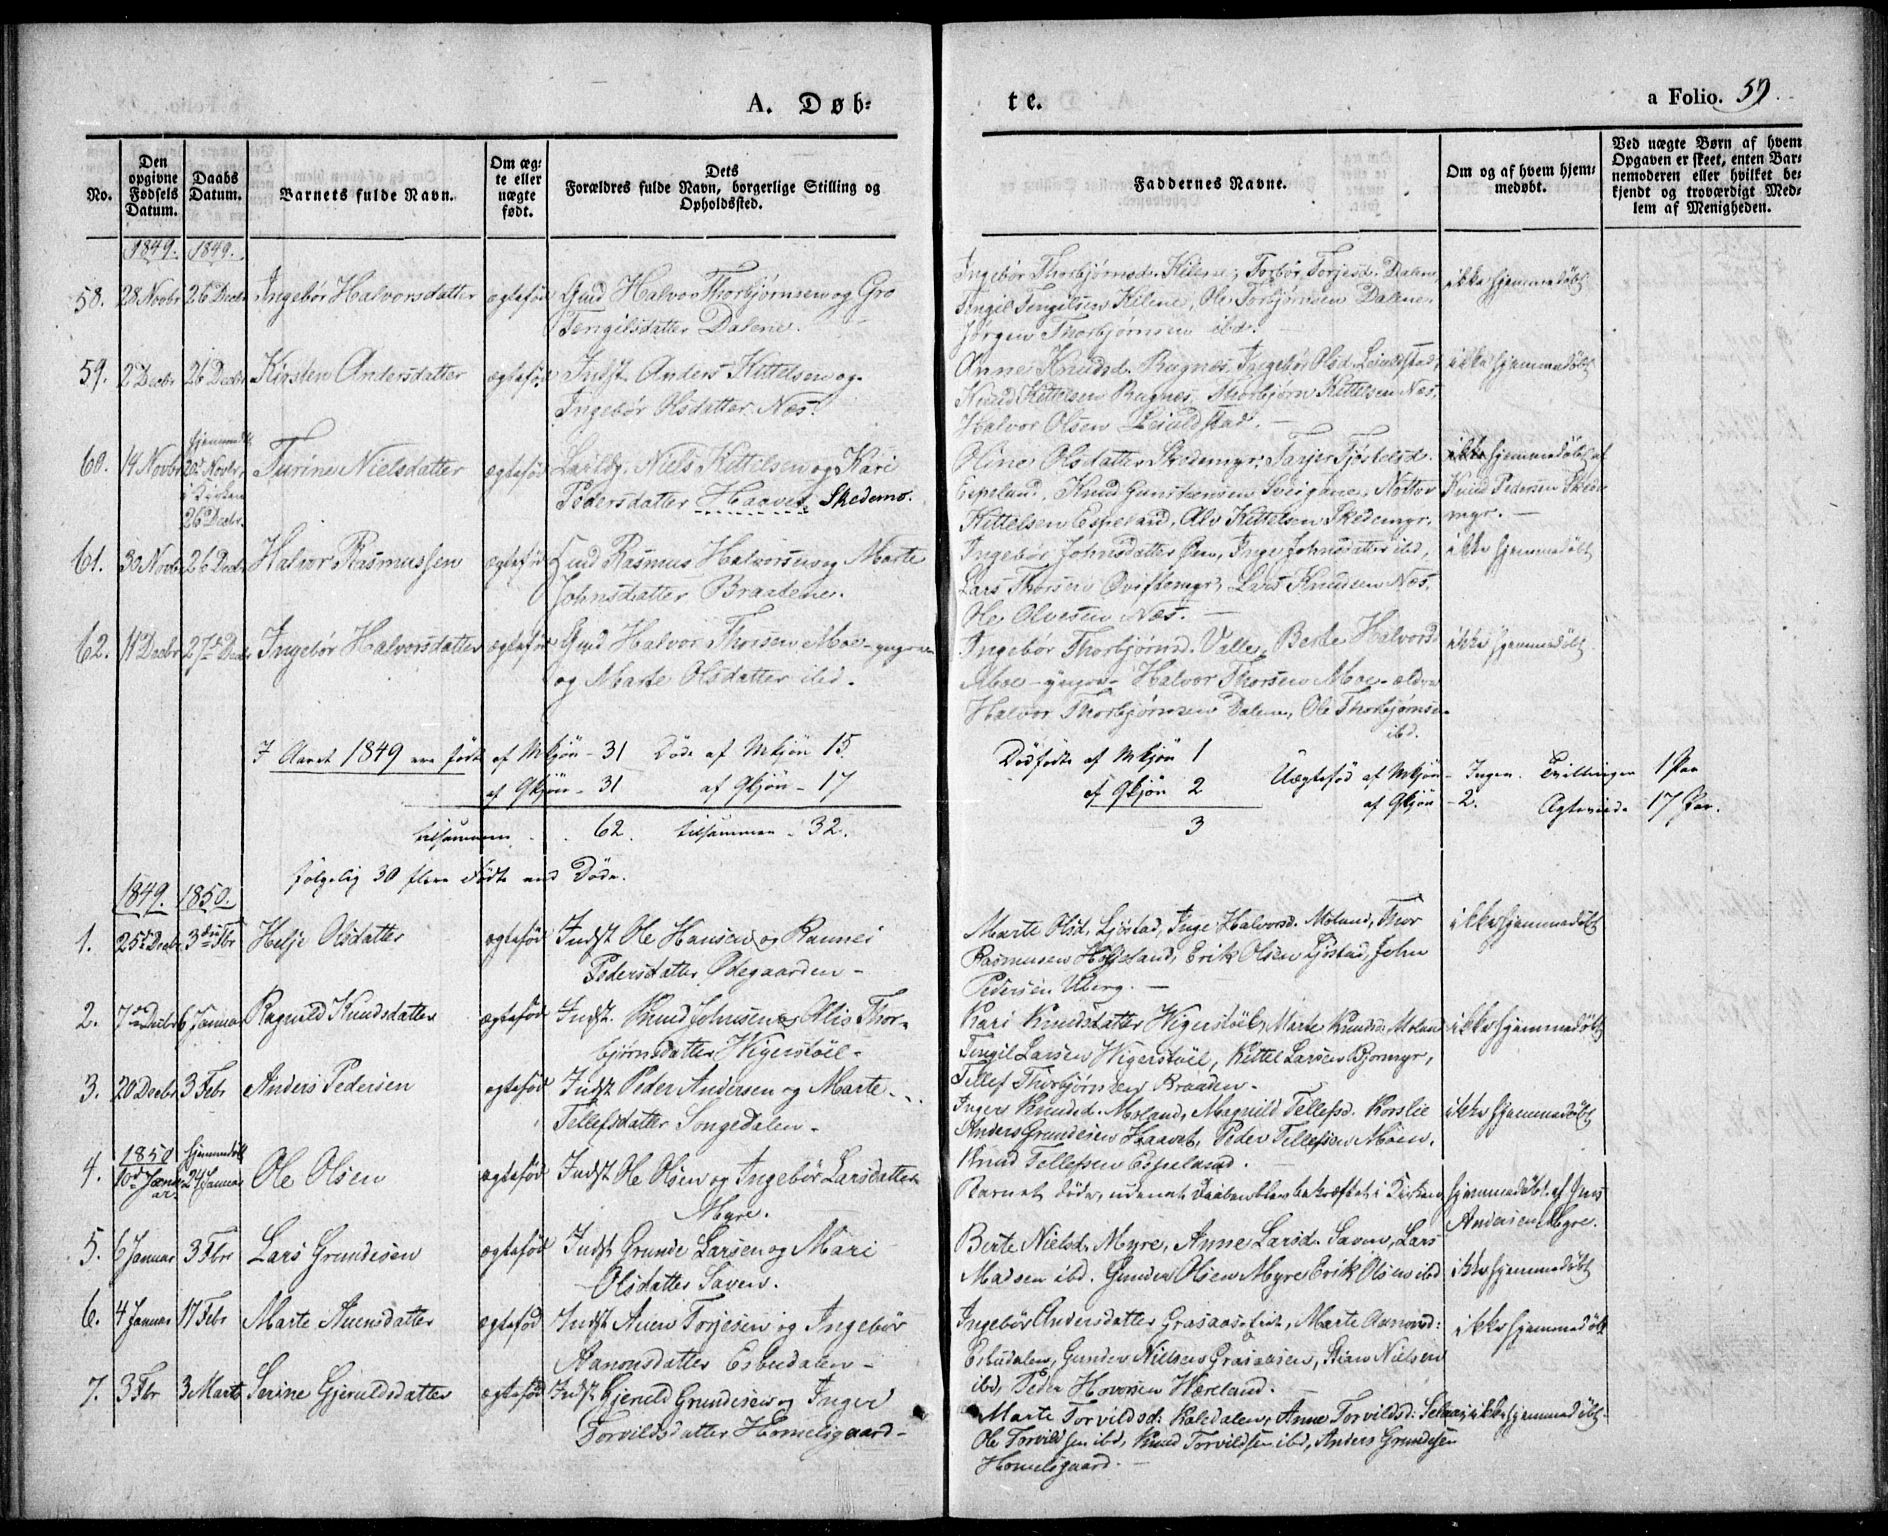 A. Døb-
te.
a Folio. 59.
No.
Den opgivne Fødsels Datum.
Daabs Datum.
Barnets fulde Navn.
Om æg-
te eller
nægte
født.
Dets
Forældres fulde Navn, borgerlige Stilling og
Opholdssted.
Faddernes Navne.
Om og af hvem hjem-
medøbt.
Ved nægte Børn af hvem
Opgaven er skeet, enten Bar-
nemoderen eller hvilket be-
kjendt og troværdigt Med-
lem af Menigheden.
1849. 1849.
58. 28 Novbr 26 Decbr Ingebør Halvorsdatter ægtefød Gmd Halvor Thorbjørnsen og Gro
Tengilsdatter Dalene.
Ingebør Thorbjørnsd. Kilene, Torbør Torjesd. Dalene
Tengil Tengilsen Kilene, Ole Torbjørnsen Dalene,
Jørgen Thorbjørnsen ibd.
ikke hjemmedøbt
59. 2 Decbr 26 Decbr Kirsten Andersdatter ægtefød Indst. Anders Kittelsen og
Ingebør Olsdatter Næs.
Anne Knudsd. Bugnæs, Ingebør Olsd. Leiuldstad,
Knud Kittelsen Bugnæs, Thorbjørn Kittelsen Næs,
Halvor Olsen Leiuldstad.
ikke hjemmedøbt
60. 14 Novbr hjemmedøbt 20de Novbr i Kirken 26 Decbr. Turine Nielsdatter ægtefød Niels Kittelsen og Kari
Pedersdatter Haavet. Skedemo.
Oline Olsdatter Skedemyr, Tarjer Tjøstelsd.
Espeland, Knud Gunstensen Sveigane, Nottov
Kittelsen Espeland, Alv Kittelsen Skedemyr.
ikke hjemmedøbt af
Knud Pedersen Skede
myr.
61. 30 Novbr 26 Decbr Halvor Rasmussen ægtefød Rasmus Halvorsen og Marte
Johnsdatter Braatene.
Ingebør Johnsdatter Øen, Inge Johnsdatter ibd,
Lars Thorsen Qviftemyr, Lars Knudsen Næs.
Ole Olvesen Næs.
ikke hjemmedøbt
62. 11 Decbr 27de Decbr Ingebør Halvorsdatter ægtefød Gmd Halvor Thorsen Moe-yngre
og Marte Olsdatter ibd.
Ingebør Thorbjørnsd. Valle, Berte Halvorsd
Moe-yngre Halvor Thorsen Moe-ældre
Halvor Thorbjørnsen Dalene, Ole Thorbjørnsen
ibd.
ikke hjemmedøbt
I Aaret 1849 ere fødte af Mkjøn - 31 Døde af Mkjøn 15.
af Qkjøn - 31 af Qkjøn - 17
tilsammen 62. tilsammen 32.
følgelig 30 flere Fødte end Døde.
Dødfødte af Mkjøn 1
af Qkjøn 2
3
Uægtefød af Mkjøn - Ingen. Tvillinger 1 Par
af Qkjøn - 2. Ægteviede 17 Par.
1849. 1850.
1. 25de Decbr 3die Fbr Helje Olsdatter ægtefød Indst Ole Hansen og Rannei
Pedersdatter Ødegaarden-
Marte Olsd. Ljøstad, Inge Halvorsd. Moland, Thor
Rasmusen Høgeland, Erik Olsen Ljøstad, John
Pedersen Uberg.
ikke hjemmedøbt
2. 7de Decbr 6 Januar Ragnild Knudsdatter ægtefød Indst. Knud Johnsen og Alis Thor-
bjørnsdatter Wigerstøel-
Kari Knudsdatter Wigerstøel, Marte Knudsd. Moland
Tengil Larsen Wigerstøel, Kittel Larsen Bjormyr,
Tellef Thorbjørnsen Braaden-
ikke hjemmedøbt
3. 20 Decbr 3 Febr Anders Pedersen ægtefød Indst Peder Andersen og Marte
Tellefsdatter Songedalen-
Inger Knudsd. Moland, Magnild Tellefsd. Korslie
Anders Grundesen Haavet, Peder Tellefsen Moen,
Knud Tellefsen Espeland.
ikke hjemmedøbt
4. 1850 10de Januar hjemmedøbt 24 Januar Ole Olsen ægtefød Indst Ole Olsen og Ingebør Larsdatter
Myre.
Barnet døde, uden at Daaben blev bekræftet i Kirken
hjemmedøbt af Jens
Andersen Myre.
5. 6 Januar 3 Fbr Lars Grundesen ægtefød Indst Grunde Larsen og Mari
Olsdatter Saven.
Berte Nielsd. Myre, Anne Larsd. Saven, Lars
Madsen ibd. Gunder Olsen Myre, Erik Olsen ibd
ikke hjemmedøbt
6. 4 Januar 17 Febr Marte Auensdatter ægtefød Indst Auen Torjesen og Ingebør
Aanonsdatter Esbudalen-
Ingebør Andersdatter Grasaasen, Marte Aanonsd:
Esbudalen, Gunder Nielsen Grasaasen, Stian Nielsen
ibd, Peder Hovorsen Wæreland.
ikke hjemmedøbt
7. 3 Fbr 3 Marts Serine Gjeruldsdatter ægtefød Indst. Gjeruld Grundesen og Inger
Torvildsdatter Homelsgaard-
Marte Torvildsd: Kaledalen, Anne Torvildsd: Selaas,
Ole Torvildsen ibd, Knud Torvildsen ibd, Anders Grundesen
Homelsgaard.
ikke hjemmedøbt